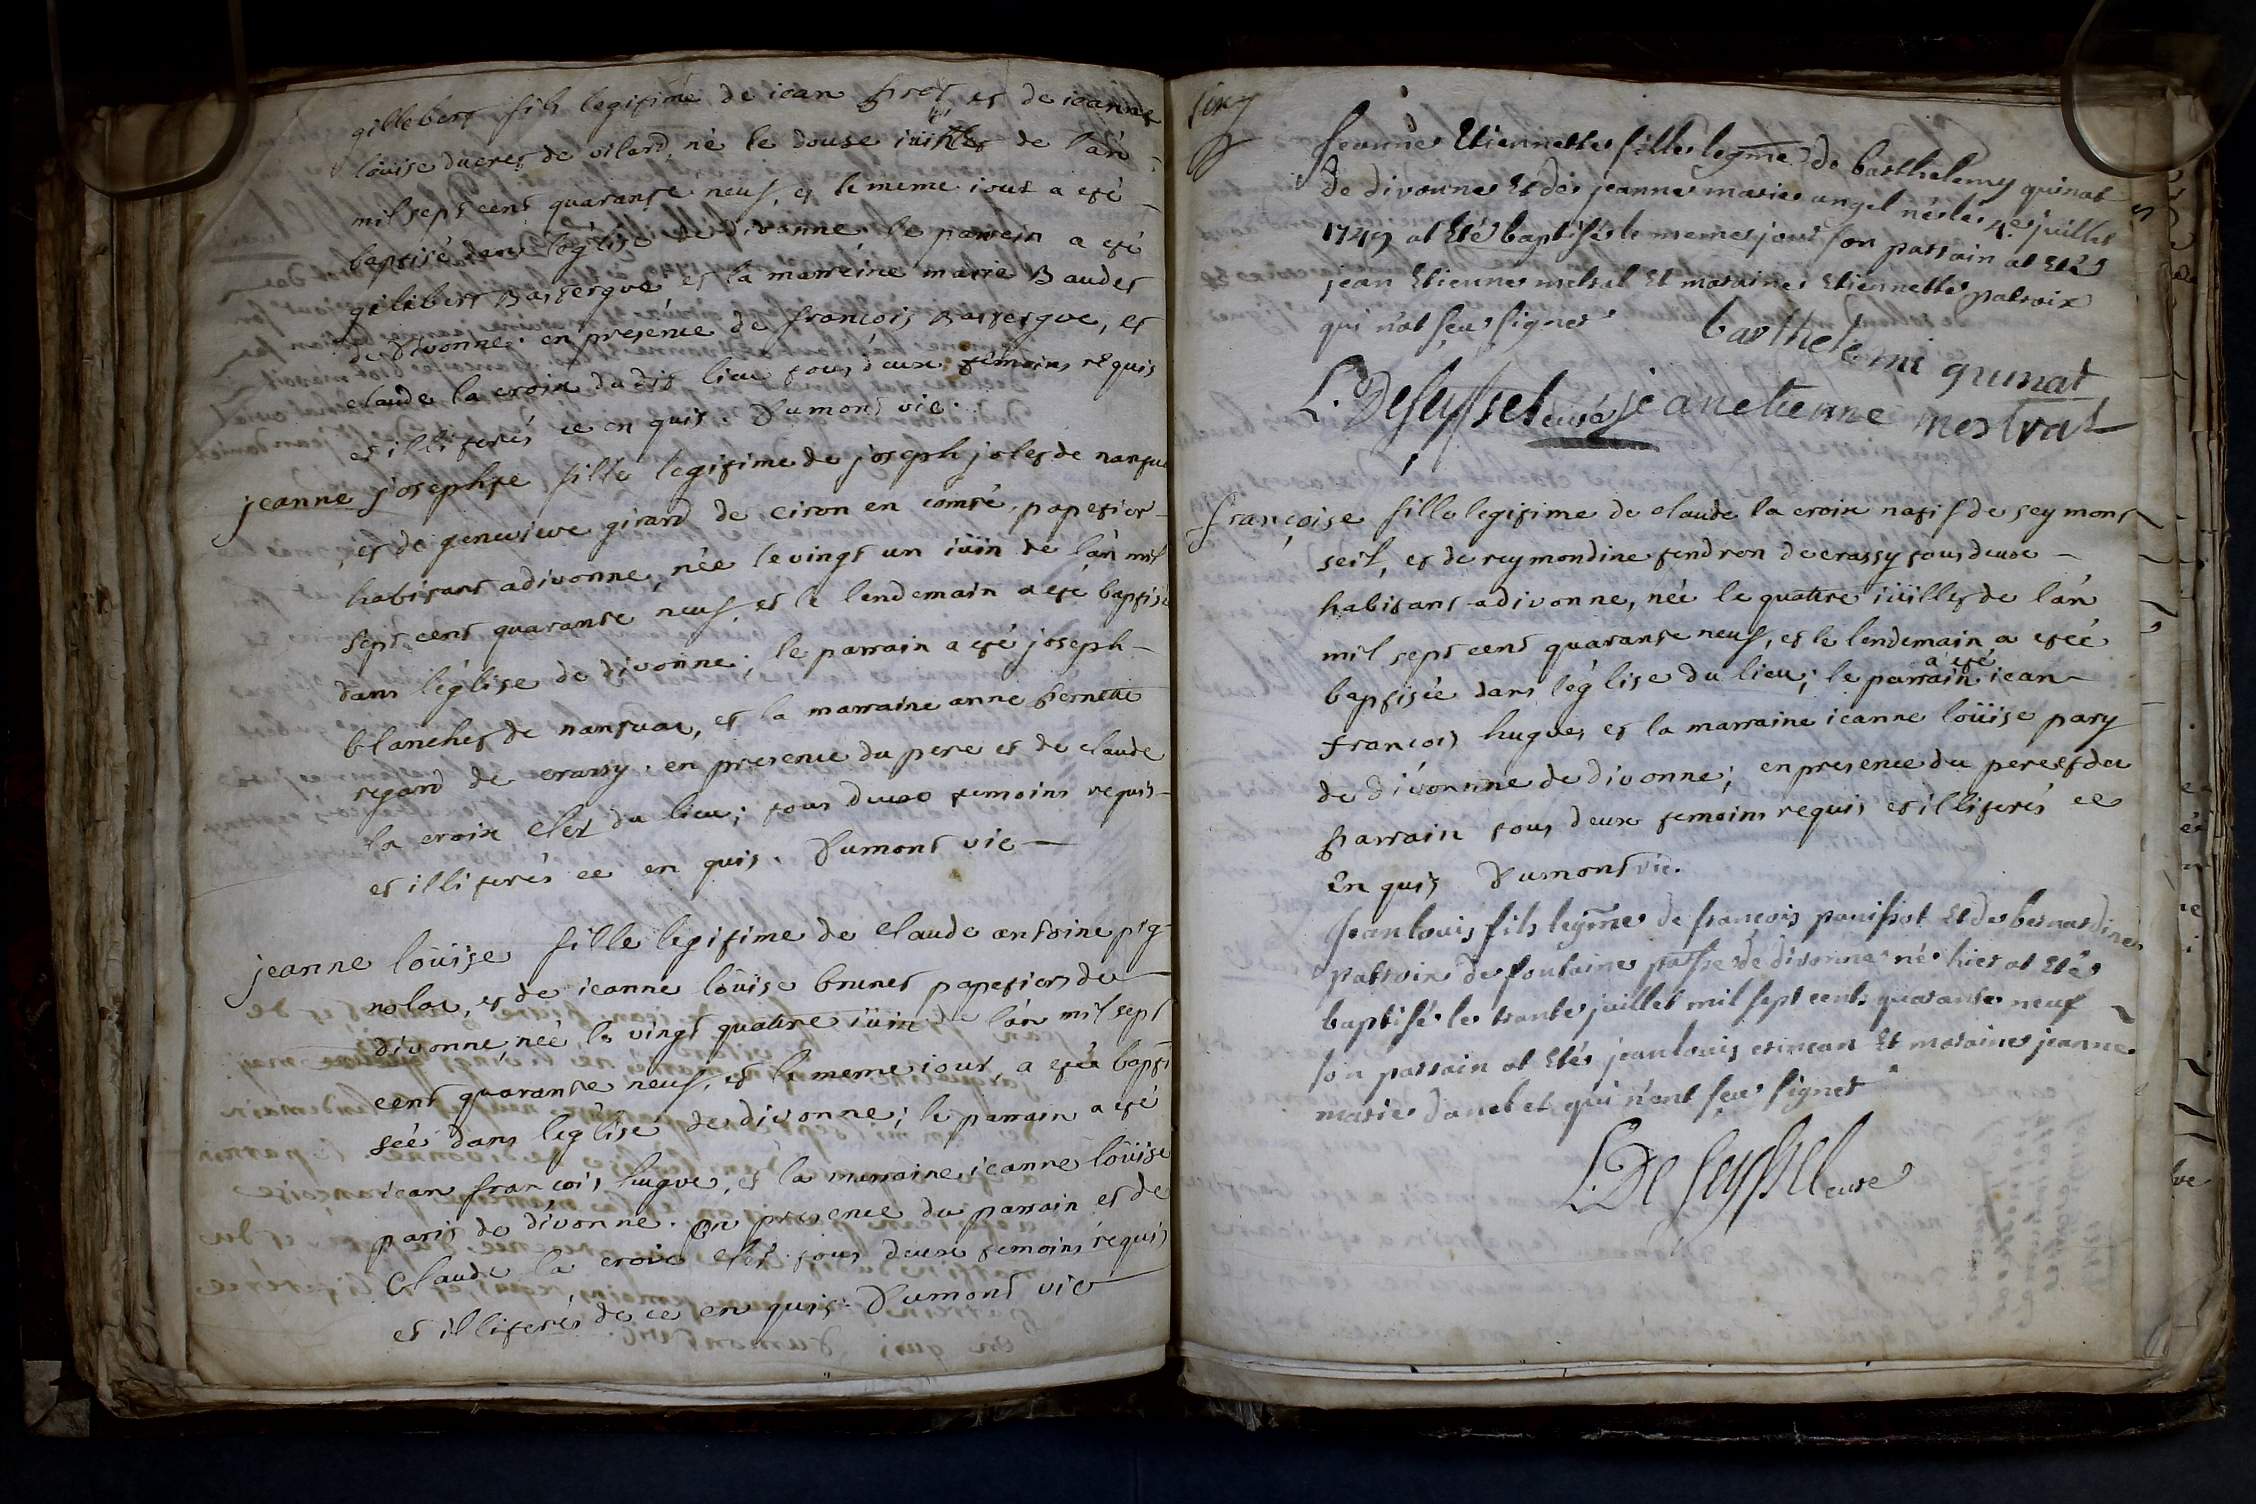 gillebert fils legitime de iean et de ieanne
loüise ducret de vilard, né le douse iüillet de l'an
mil sept cent quarante neuf, et le meme iour a eté
baptisé dans l'église de divonne le parrein a eté
gilibert Bassesgue et la marreine marie Baudet
de divonne. en presence de francois Bassesgue, et
claude la croix dudit lieu tous deux temoins requis
et illiterés ce en quis. Dumont vic.
jeanne josephte fille legitime de joseph jolet de nantua
et de genevieve girard de ciron en comté, papetier
habitant a divonne, née le vingt un iüin de l'an mil
sept cent quarante neuf et le lendemain a eté baptisé
dans l'église de divonne; le parrain a eté joseph
blanchet de nantuae, et la marraine anne pernette
regard de crassy. en presence du pere et de claude
la croix clet du lieu; tous deux temoins requis
et illiterés ce en quis. Dumont vic
jeanne loüise fille legitime de claude antoine pig
nolae, et de ieanne loüise brunet papetier de
divonne née le vingt quatre iüin de l'an mil sept
cent quarante neuf, et le meme iour, a etée bapti
sée dans l'église de divonne; le parrain a eté
iean francois hugue, et la marraine ieanne loüise
paris de divonne. en presence du parrain et de
Claude la croix clet tous deux temoins requis
et illiterés de ce en quis. Dumont vic
jeanne Etiennette fille legme de barthelemy quinat
de divonne et de jeanne marie angel née le 4e juillet
1749 at Eté baptisée le meme jour son parrain at Eté
jean Etienne metral Et maraine Etiennette patroix
qui n'at sçeu signer barthelemi quinat
L. DeSeyssel curé jean etienne mestral
françoise fille legitime de claude la croix natif de seymont
seil, et de reymondine tendron de crassy tous deux
habitant a divonne, née le quatre iüillet de l'an
mil sept cent quarante neuf, et le lendemain a etée
baptisée dans l'église du lieu; le parrain a eté iean
francois hugue, et la marraine ieanne loüise pary
de divonnne de divonne; en presence du pere et du
parrain tous deux temoins requis et illiterés ce
En quis Dumont vic.
Jean louis fils legme de françois panissot Et de bernardine
patroix de fontaine passe de divonne né hier at Eté
baptisé le trante juillet mil sept cents quarante neuf
son parrain at Eté jean louis Et maraine jeanne
marie danel et qui n'ont sçeu signer
L. De Seyssel curé